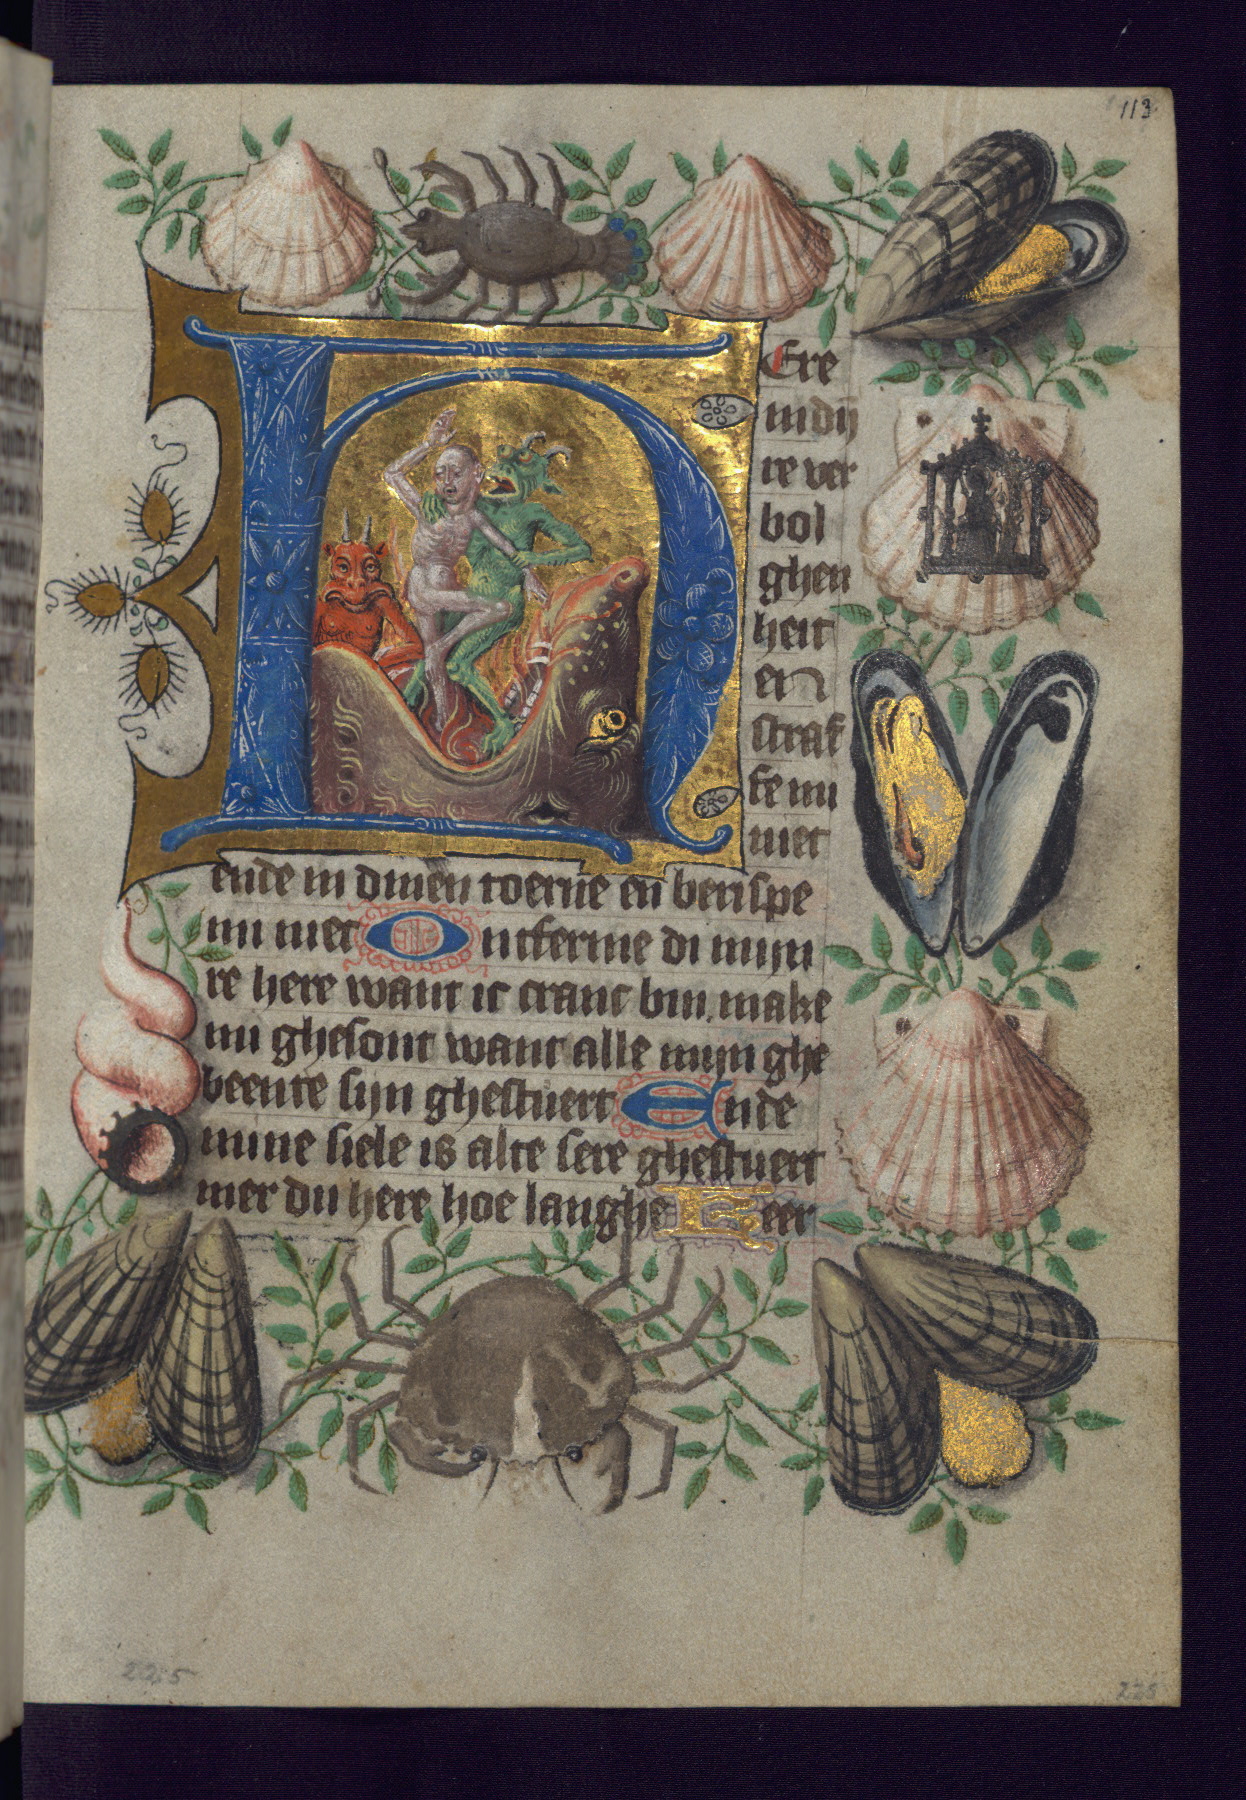 113
HEre
in dij
re ver
bol
ghen
heit
en
straf
fe mi
niet
ende in dinen toerne en berispe
mi niet Ontferme di mijn
re here want ic cranc bin make
mi ghesont want alle mijn ghe
beente sijn ghestuert Ende
mine siele is alte sere ghestuert
mer du here hoe langhe Keer
225
228